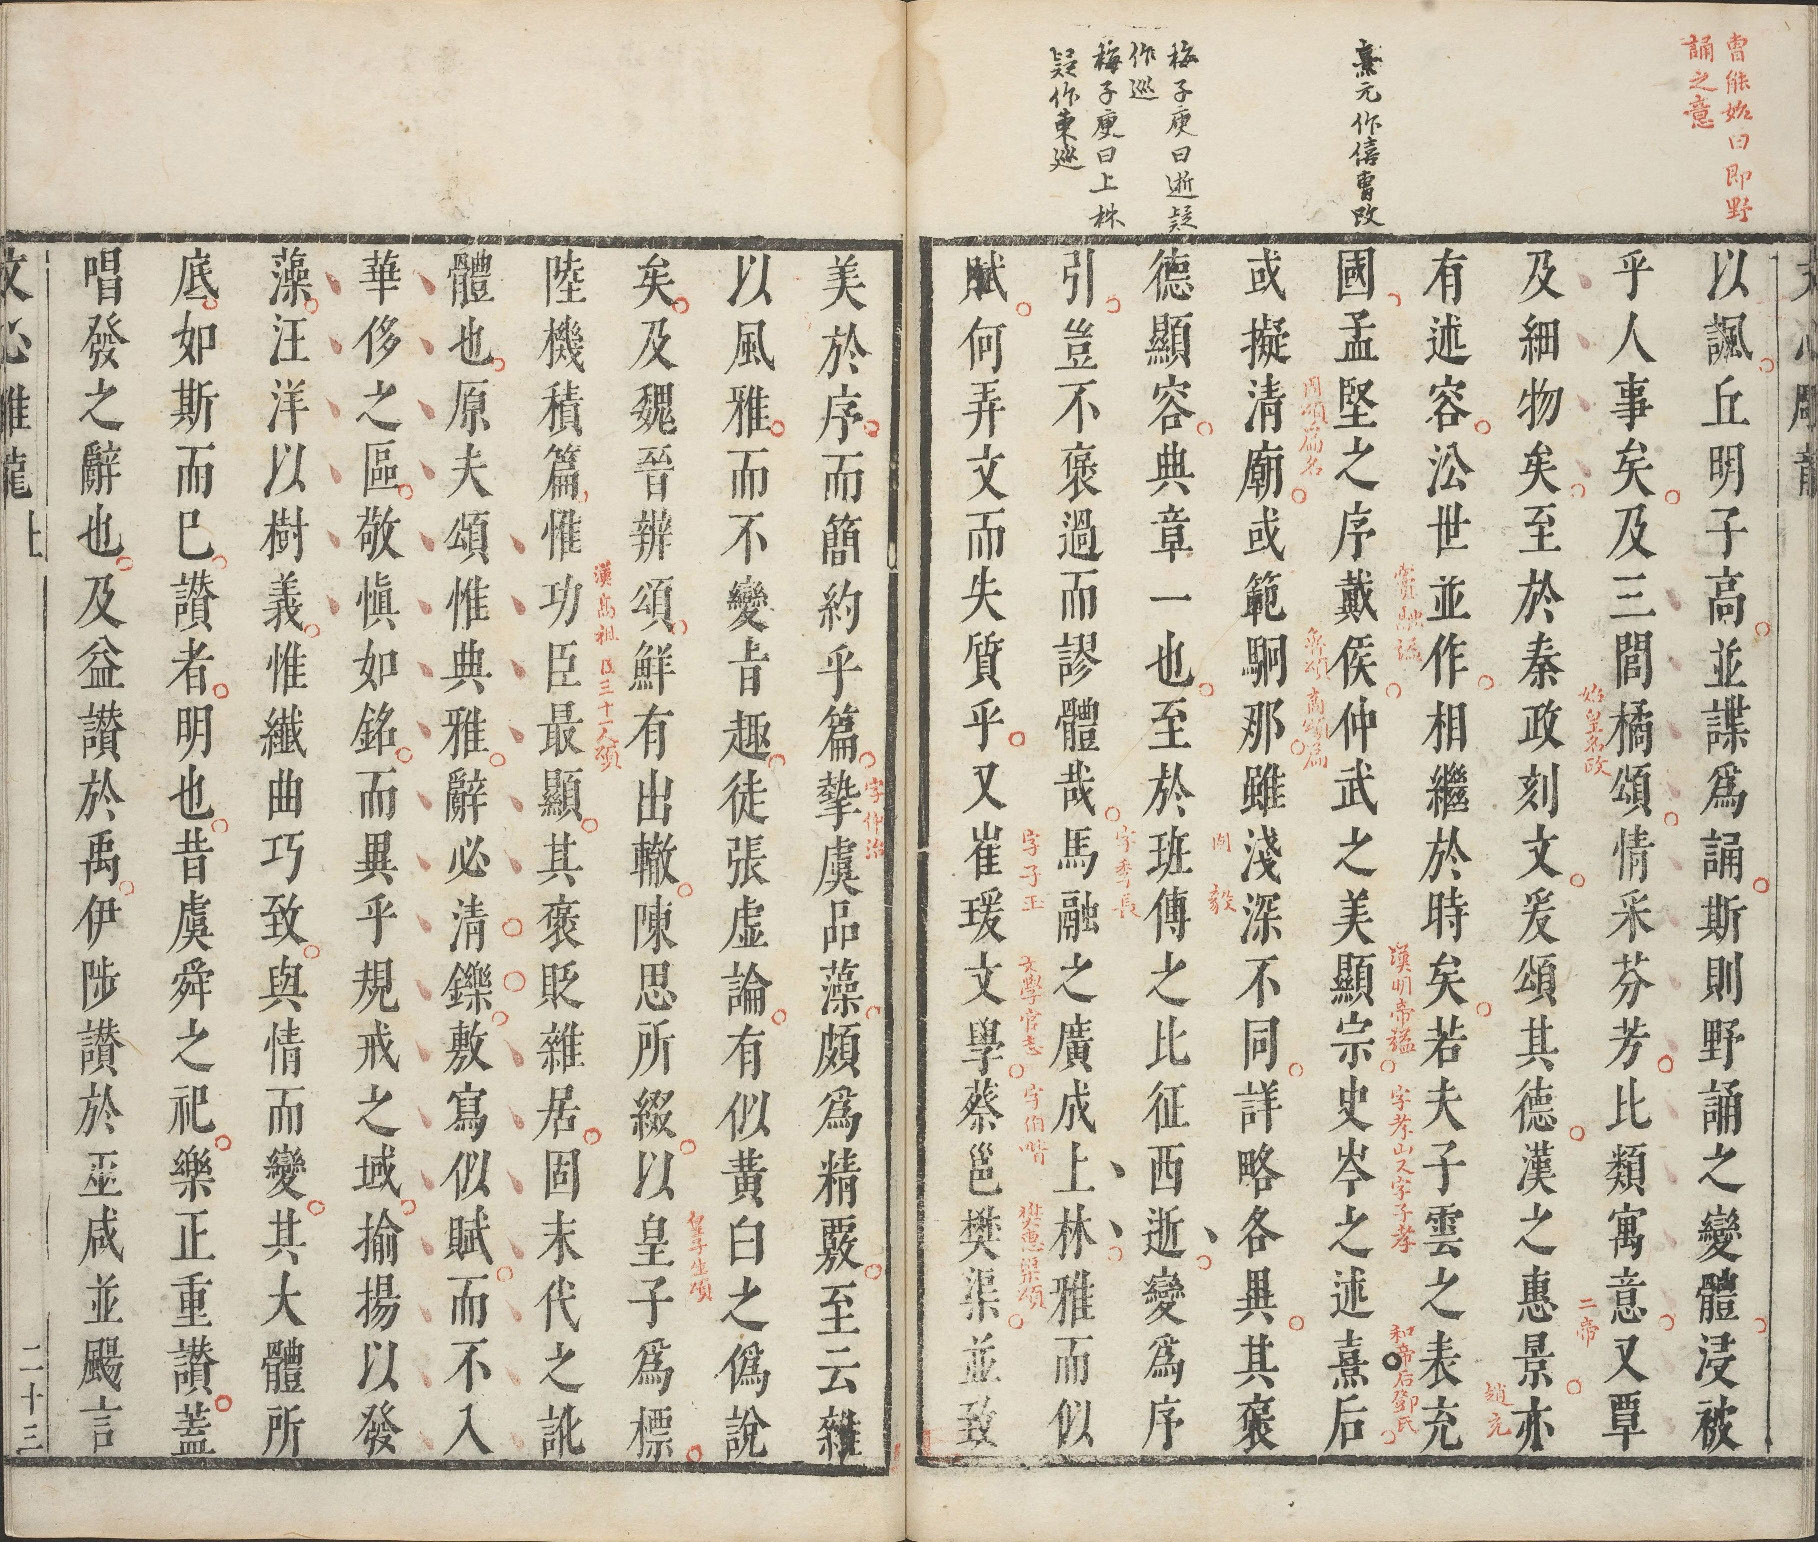 曹能始曰即野
誦之意
熹元作僖曹改
梅子庾曰逝疑
作巡
梅子庾曰上林
疑作東巡
文心雕龍
以諷丘明子高並諜爲誦斯則野誦之變體浸被
乎人事矣及三閭橘頌情采芬芳比類寓意又覃
及細物矣至於秦政刻文爰頌其德漢之惠景亦
始皇名政
二帝
有述容沿世並作相繼於時矣若夫子雲之表充
趙充
國孟堅之序戴侯仲武之美顯宗史岑之述熹后
竇融諡
漢明帝謚
字孝山又字子孝
和帝后鄧氏
或擬清廟或範駉那雖淺深不同詳略各異其褒
周頌篇名
魯頌商頌篇
德顯容典章一也至於班傅之比征西逝變爲序
固
毅
引豈不褒過而謬體哉馬融之廣成上林雅而似
字季長
賦何弄文而失質乎又崔瑗文學蔡邕樊渠並致
字子玉
文學官志
字伯喈
樊惠渠頌
美於序而簡約乎篇摯虞品藻頗爲精覈至云雜
字仲治
以風雅而不變旨趣徒張虛論有似黃白之僞說
矣及魏晉辨頌鮮有出轍陳思所綴以皇子爲標
皇子生頌
陸機積篇惟功臣最顯其褒貶雜居固末代之訛
漢高祖臣三十一人頌
體也原夫頌惟典雅辭必清鑠敷寫似賦而不入
華侈之區敬慎如銘而異乎規戒之域揄揚以發
藻汪洋以樹義惟纖曲巧致與情而變其大體所
底如斯而已讚者明也昔虞舜之祀樂正重讚蓋
唱發之辭也及益讚於禹伊陟讚於巫咸並颺言
文心雕龍上
二十三